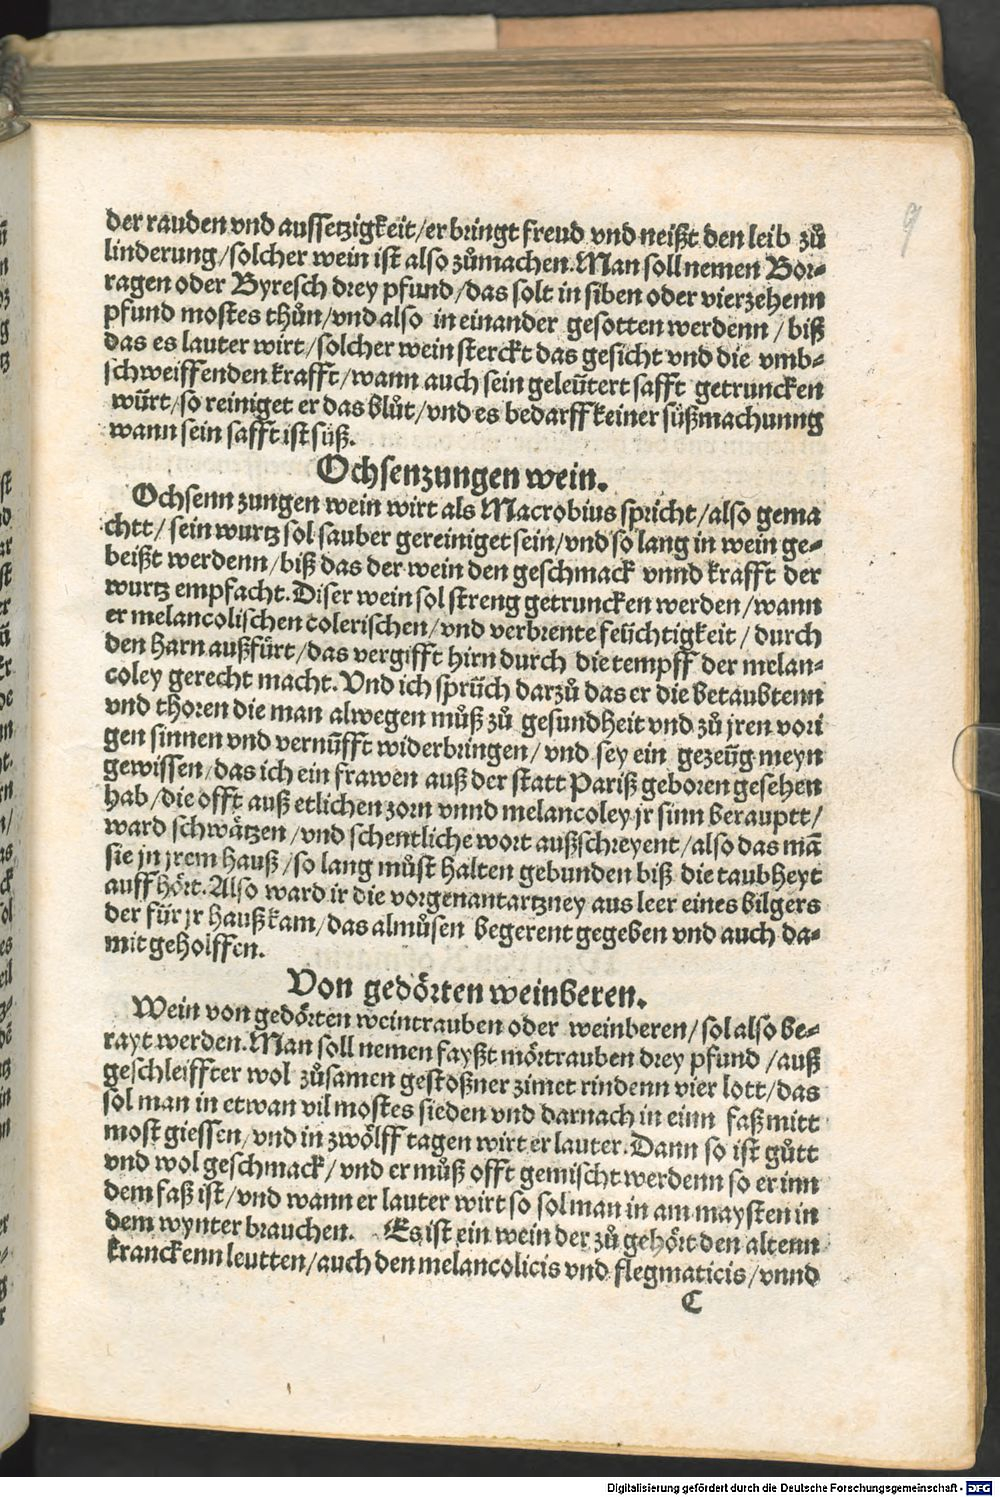 9
der rauden vnd aussetzigkeit/er bringt freud vnd neißt den leib zů
linderung/solcher wein ist also zůmachen.Man soll nemen Bor⸗
ragen oder Byresch drey pfund/das solt in siben oder vierzehenn
pfund mostes thůn/vnd also in einander gesotten werdenn/biß
das es lauter wirt/solcher wein sterckt das gesicht vnd die vmb⸗
schweiffenden krafft/wann auch sein geleütert safft getruncken
würt/so reiniget er das blůt/vnd es bedarff keiner süßmachunng
wann sein safft ist süß.
Ochsenzungen wein.
Ochsenn zungen wein wirt als Macrobius spricht/also gema
chtt/sein wurtz sol sauber gereiniget sein/vnd so lang in wein ge⸗
beißt werdenn/biß das der wein den geschmack vnnd krafft der
wurtz empfacht.Diser wein sol streng getruncken werden/wann
er melancolischen colerischen/vnd verbrente feüchtigkeit/durch
den harn außfürt/das vergifft hirn durch die tempff der melan⸗
coley gerecht macht.Vnd ich sprüch darzů das er die betaubtenn
vnd thoren die man alwegen můß zů gesundheit vnd zů jren vori
gen sinnen vnd vernüfft widerbringen/vnd sey ein gezeüg meyn
gewissen/das ich ein frawen auß der statt Pariß geboren gesehen
hab/die offt auß etlichen zorn vnnd melancoley jr sinn berauptt/
ward schwätzen/vnd schentliche wort außschreyent/also das mā
sie jn jrem hauß/so lang můst halten gebunden biß die taubheyt
auff hört.Also ward ir die vorgenant artzney aus leer eines bilgers
der für jr hauß kam/das almůsen begerent gegeben vnd auch da⸗
mit geholffen.
Von gedörten weinberen.
Wein von gedörten weintrauben oder weinberen/sol also be⸗
rayt werden.Man soll nemen fayßt mörtrauben drey pfund/auß
geschleiffter wol zůsamen gestoßner zimet rindenn vier lott/das
sol man in etwan vil mostes sieden vnd darnach in einn faß mitt
most giessen/vnd in zwölff tagen wirt er lauter.Dann so ist gůtt
vnd wol geschmack/vnd er můß offt gemischt werdenn so er inn
dem faß ist/vnd wann er lauter wirt so sol man in am maysten in
dem wynter brauchen. Es ist ein wein der zů gehört den altenn
kranckenn leutten/auch den melancolicis vnd flegmaticis/vnnd
C
Digitalisierung gefördert durch die Deutsche Forschungsgemeinschaft - DFG